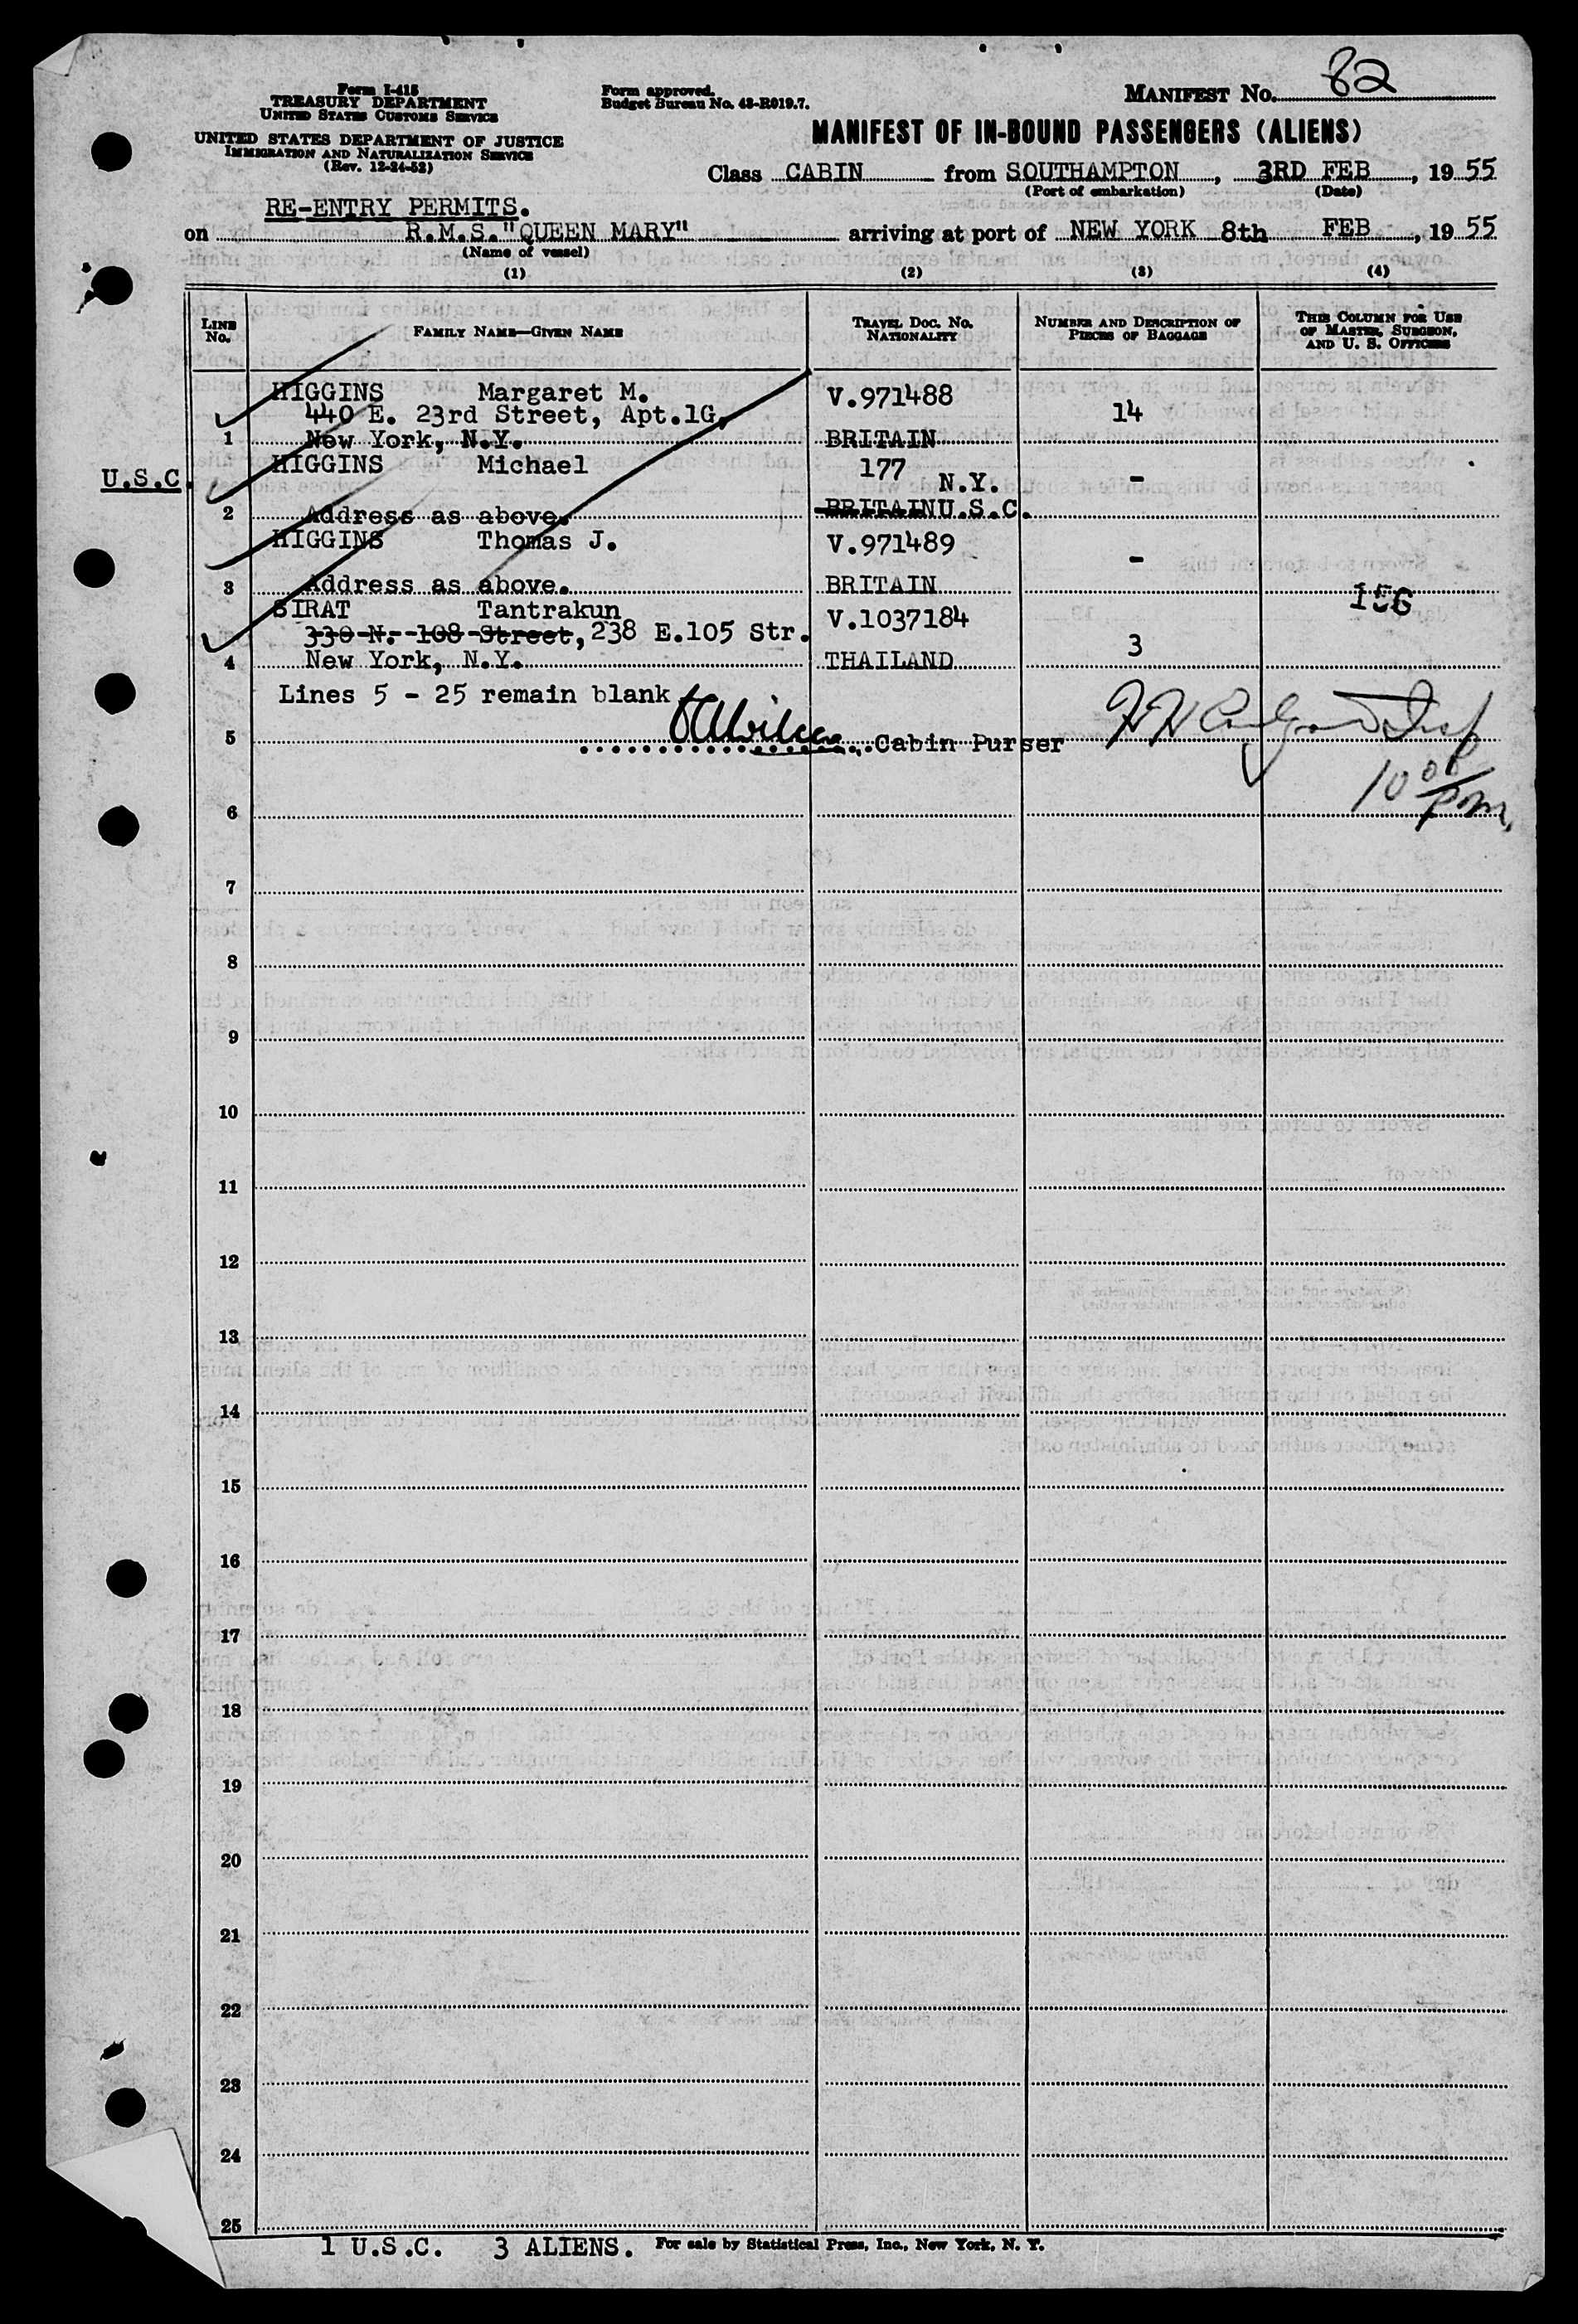 Form I-415
TREASURY DEPARTMENT
UNITED STATES CUSTOMS SERVICE
UNITED STATES DEPARTMENT OF JUSTICE
IMMIGRATION AND NATURALIZATION SERVICE
(Rev. 12-24-52)
Form approved.
Budget Bureau No. 43-R019.7.
MANIFEST NO. 82
MANIFEST OF IN-BOUND PASSENGERS (ALIENS)
Class CABIN from SOUTHAMPTON, 3RD FEB, 19 55
(Port of embarkation) (Date)
RE-ENTRY PERMITS.
on R.M.S."QUEEN MARY" arriving at port of NEW YORK 8th FEB, 19 55
(Name of vessel)
(1) (2) (3) (4)
LINE NO. FAMILY NAME—GIVEN NAME TRAVEL DOC. NO. NATIONALITY NUMBER AND DESCRIPTION OF PIECES OF BAGGAGE THIS COLUMN FOR USE OF MASTER, SURGEON, AND U. S. OFFICERS
HIGGINS Margaret M. V.971488
440 E. 23rd Street, Apt.1G, 14
1 New York, N.Y. BRITAIN
HIGGINS Michael 177 N.Y. -
U.S.C.
2 Address as above. BRITAIN U.S.C.
HIGGINS Thomas J. V.971489 -
3 Address as above. BRITAIN
SIRAT Tantrakun V.1037184 156
330 N. 108 Street, 238 E.105 Str. 3
4 New York, N.Y. THAILAND
Lines 5 - 25 remain blank
5 Cabin Purser
10 00 pm.
6
7
8
9
10
11
12
13
14
15
16
17
18
19
20
21
22
23
24
25
1 U.S.C. 3 ALIENS. For sale by Statistical Press, Inc., New York, N. Y.